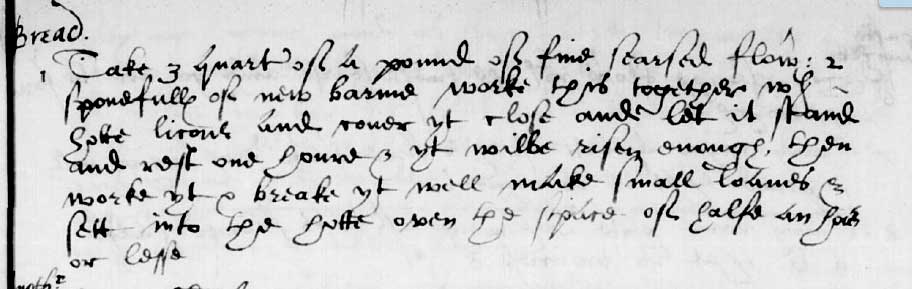 Bread.
1 Take 3 quart^r of a pound of fine searsed flow^r: 2
sponefull of new barme worke this together w^th
hotte licour and couer yt close ande let it stand
and rest one houre & yt wilbe risen enough, then
worke yt & breake yt well make small loaues &
sett into the hotte oven the space of halfe an hou^r
or lesse
noth^r